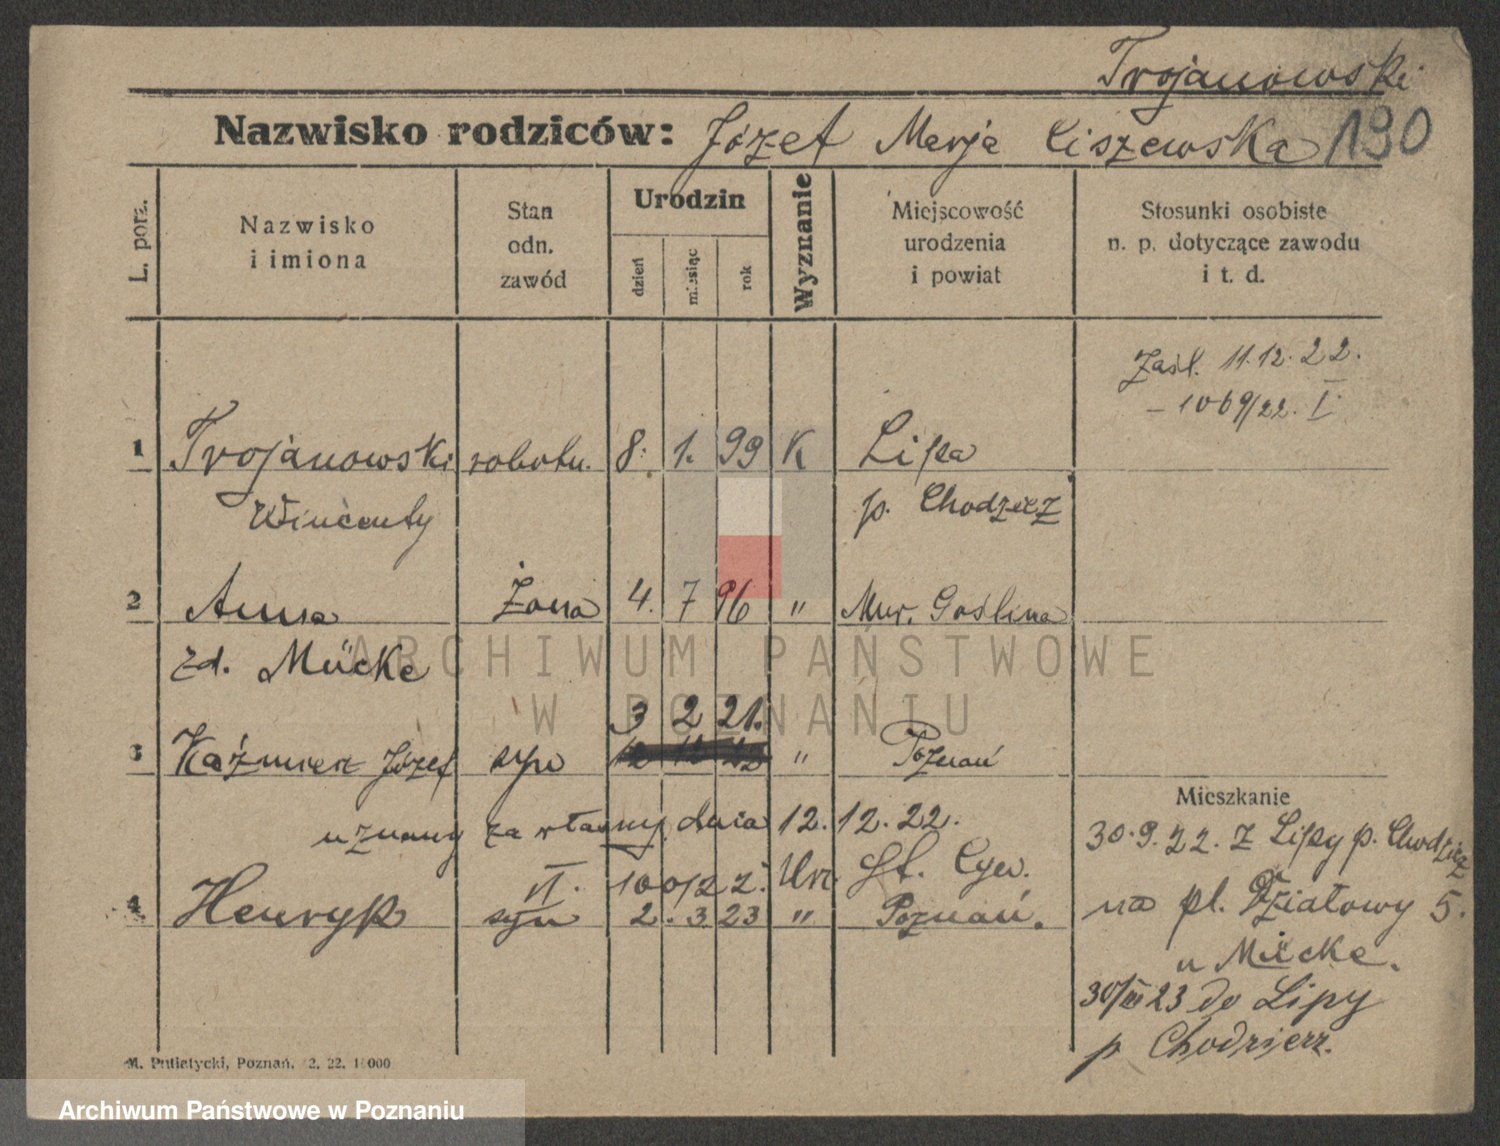 Trojanowski
Nazwisko rodziców: Józef Marja Ciszewska 190
L. porz.
Nazwisko
i imiona
Stan
odn.
zawód
Urodzin
dzień
miesiąc
rok
Wyznanie
Miejscowość
urodzenia
i powiat
Stosunki osobiste
n. p. dotyczące zawodu
i t. d.
Zaśl. 11.12.22.
- 1069/22. I
1 Trojanowski robotn. 8. 1. 99 K Lipa
Wincenty p. Chodzież
2 Anna Żona 4. 7 96 " Mur. Goślina
zd. Mücke
ARCHIWUM PAŃSTWOWE
W POZNANIU
3 2 21.
3 Kaźmierz Józef syn " Poznań
Mieszkanie
uznany za własny dnia 12. 12. 22.
30.9.22. z Lipy p. Chodzież
VI. 100/22 Urz. St. Cyw.
4 Henryk syn 2. 3 23 " Poznań.
na pl. Działowy 5.
u Mücke.
30/III 23 do Lipy
p Chodzierz.
M. Putiatycki, Poznań. 2. 22. 10000
Archiwum Państwowe w Poznaniu